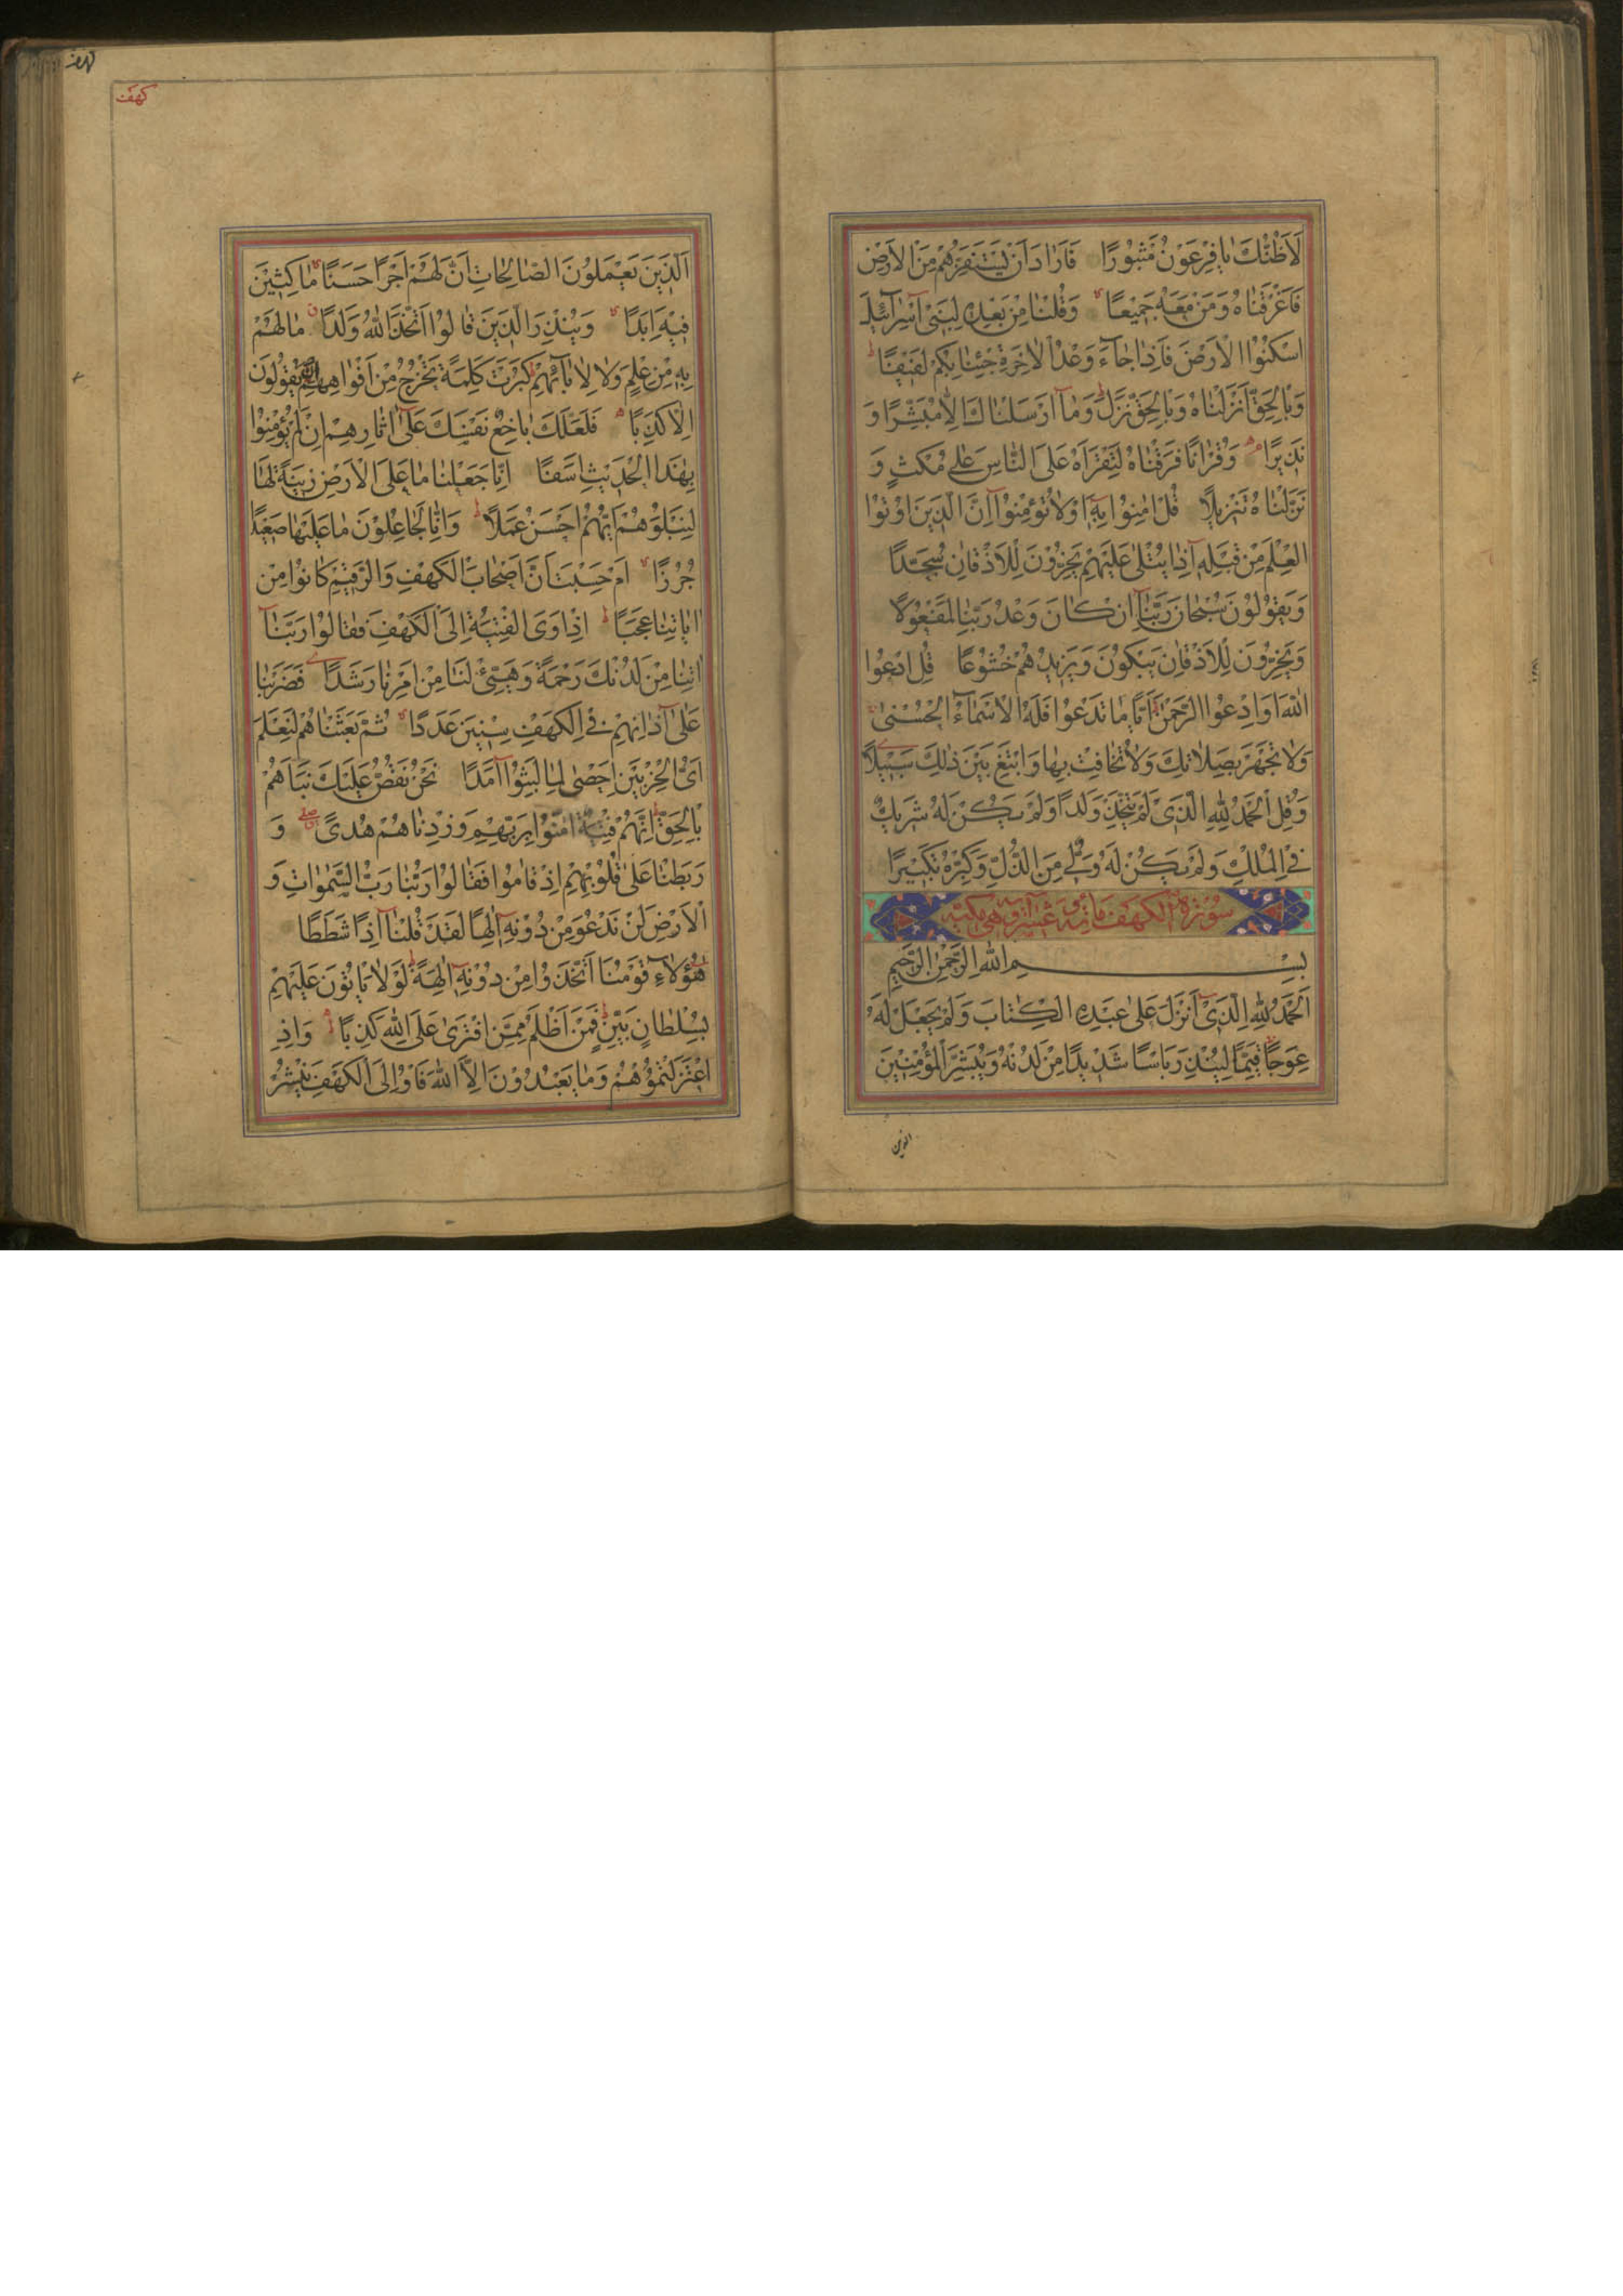 لَأَظُنُّكَ يٰا فِرْعَوْنُ مَثْبُورًا فَأَرٰادَ أَنْ يَسْتَفِزَّهُمْ مِنَ الْأَرْضِ
فَأَغْرَقْنٰاهُ وَمَنْ مَعَهُ جَمِيعًا وَقُلْنٰا مِنْ بَعْدِهِ لِبَنِي إِسْرٰآئِيلَ
اسْكُنُوا الْأَرْضَ فَإِذٰا جٰآءَ وَعْدُ الْآخِرَةِ جِئْنٰا بِكُمْ لَفِيفًا
وَبِالْحَقِّ أَنْزَلْنٰاهُ وَبِالْحَقِّ نَزَلَ وَمٰآ أَرْسَلْنٰاكَ إِلّٰا مُبَشِّرًا وَ
نَذِيرًا وَقُرْاٰنًا فَرَقْنٰاهُ لِتَقْرَأَهُ عَلَى النّٰاسِ عَلىٰ مُكْثٍ وَ
نَزَّلْنٰاهُ تَنْزِيلًا قُلْ اٰمِنُوا بِهِ أَوْلٰا تُؤْمِنُوا إِنَّ الَّذِينَ أُوتُوا
الْعِلْمَ مِنْ قَبْلِهِ إِذٰا يُتْلىٰ عَلَيْهِمْ يَخِرُّونَ لِلْأَذْقٰانِ سُجَّدًا
وَيَقُولُونَ سُبْحٰانَ رَبِّنٰآ إِنْ كٰانَ وَعْدُ رَبِّنٰا لَمَفْعُولًا
وَيَخِرُّونَ لِلْأَذْقٰانِ يَبْكُونَ وَيَزِيدُهُمْ خُشُوعًا قُلِ ادْعُوا
اللّٰهَ أَوِ ادْعُوا الرَّحْمٰنَ أَيًّا مٰا تَدْعُوا فَلَهُ الْأَسْمٰآءُ الْحُسْنىٰ
وَلٰا تَجْهَرْ بِصَلٰاتِكَ وَلٰا تُخٰافِتْ بِهٰا وَابْتَغِ بَيْنَ ذٰلِكَ سَبِيلًا
وَقُلِ الْحَمْدُ لِلّٰهِ الَّذِي لَمْ يَتَّخِذْ وَلَدًا وَلَمْ يَكُنْ لَهُ شَرِيكٌ
فِي الْمُلْكِ وَلَمْ يَكُنْ لَهُ وَلِيٌّ مِنَ الذُّلِّ وَكَبِّرْهُ تَكْبِيرًا
سورة الكهف مائة وعشر آية وهي مكية
بِسْمِ اللّٰهِ الرَّحْمٰنِ الرَّحِيمِ
الْحَمْدُ لِلّٰهِ الَّذِي أَنْزَلَ عَلىٰ عَبْدِهِ الْكِتٰابَ وَلَمْ يَجْعَلْ لَهُ
عِوَجًا قَيِّمًا لِيُنْذِرَ بَأْسًا شَدِيدًا مِنْ لَدُنْهُ وَيُبَشِّرَ الْمُؤْمِنِينَ
الذين
كهف
الَّذِينَ يَعْمَلُونَ الصّٰالِحٰاتِ أَنَّ لَهُمْ أَجْرًا حَسَنًا مٰاكِثِينَ
فِيهِ أَبَدًا وَيُنْذِرَ الَّذِينَ قٰالُوا اتَّخَذَ اللّٰهُ وَلَدًا مٰا لَهُمْ
بِهِ مِنْ عِلْمٍ وَلٰا لِاٰبٰآئِهِمْ كَبُرَتْ كَلِمَةً تَخْرُجُ مِنْ أَفْوٰاهِهِمْ إِنْ يَقُولُونَ
إِلّٰا كَذِبًا فَلَعَلَّكَ بٰاخِعٌ نَفْسَكَ عَلىٰ اٰثٰارِهِمْ إِنْ لَمْ يُؤْمِنُوا
بِهٰذَا الْحَدِيثِ أَسَفًا إِنّٰا جَعَلْنٰا مٰا عَلَى الْأَرْضِ زِينَةً لَهٰا
لِنَبْلُوَهُمْ أَيُّهُمْ أَحْسَنُ عَمَلًا وَإِنّٰا لَجٰاعِلُونَ مٰا عَلَيْهٰا صَعِيدًا
جُرُزًا أَمْ حَسِبْتَ أَنَّ أَصْحٰابَ الْكَهْفِ وَالرَّقِيمِ كٰانُوا مِنْ
اٰيٰاتِنٰا عَجَبًا إِذْ أَوَى الْفِتْيَةُ إِلَى الْكَهْفِ فَقٰالُوا رَبَّنٰآ
اٰتِنٰا مِنْ لَدُنْكَ رَحْمَةً وَهَيِّئْ لَنٰا مِنْ أَمْرِنٰا رَشَدًا فَضَرَبْنٰا
عَلىٰ اٰذٰانِهِمْ فِي الْكَهْفِ سِنِينَ عَدَدًا ثُمَّ بَعَثْنٰاهُمْ لِنَعْلَمَ
أَيُّ الْحِزْبَيْنِ أَحْصىٰ لِمٰا لَبِثُوا أَمَدًا نَحْنُ نَقُصُّ عَلَيْكَ نَبَأَهُمْ
بِالْحَقِّ إِنَّهُمْ فِتْيَةٌ اٰمَنُوا بِرَبِّهِمْ وَزِدْنٰاهُمْ هُدًى وَ
رَبَطْنٰا عَلىٰ قُلُوبِهِمْ إِذْ قٰامُوا فَقٰالُوا رَبُّنٰا رَبُّ السَّمٰوٰاتِ وَ
الْأَرْضِ لَنْ نَدْعُوَ مِنْ دُونِهِ إِلٰهًا لَقَدْ قُلْنٰآ إِذًا شَطَطًا
هٰؤُلٰآءِ قَوْمُنَا اتَّخَذُوا مِنْ دُونِهِ اٰلِهَةً لَوْلٰا يَأْتُونَ عَلَيْهِمْ
بِسُلْطٰانٍ بَيِّنٍ فَمَنْ أَظْلَمُ مِمَّنِ افْتَرىٰ عَلَى اللّٰهِ كَذِبًا وَإِذِ
اعْتَزَلْتُمُوهُمْ وَمٰا يَعْبُدُونَ إِلَّا اللّٰهَ فَأْوُوا إِلَى الْكَهْفِ يَنْشُرْ